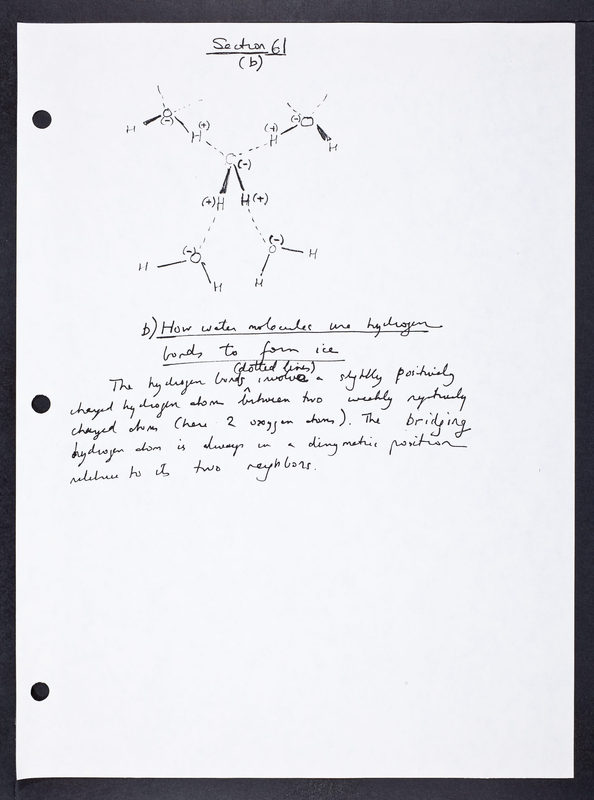 Section 61
(b)
O (-)
H
H (+)
(-) O
(+) H
H
(-)
(+) H
H (+)
(-) O
H
H
(-) O
H
H
b) How water molecules use hydrogen
bonds to form ice
(dotted lines)
The hydrogen bonds involve a slightly positively
charged hydrogen atom between two weakly negatively
charged atoms (here 2 oxygen atoms). The bridging
hydrogen atom is always in a position
relative to its two neighbors.